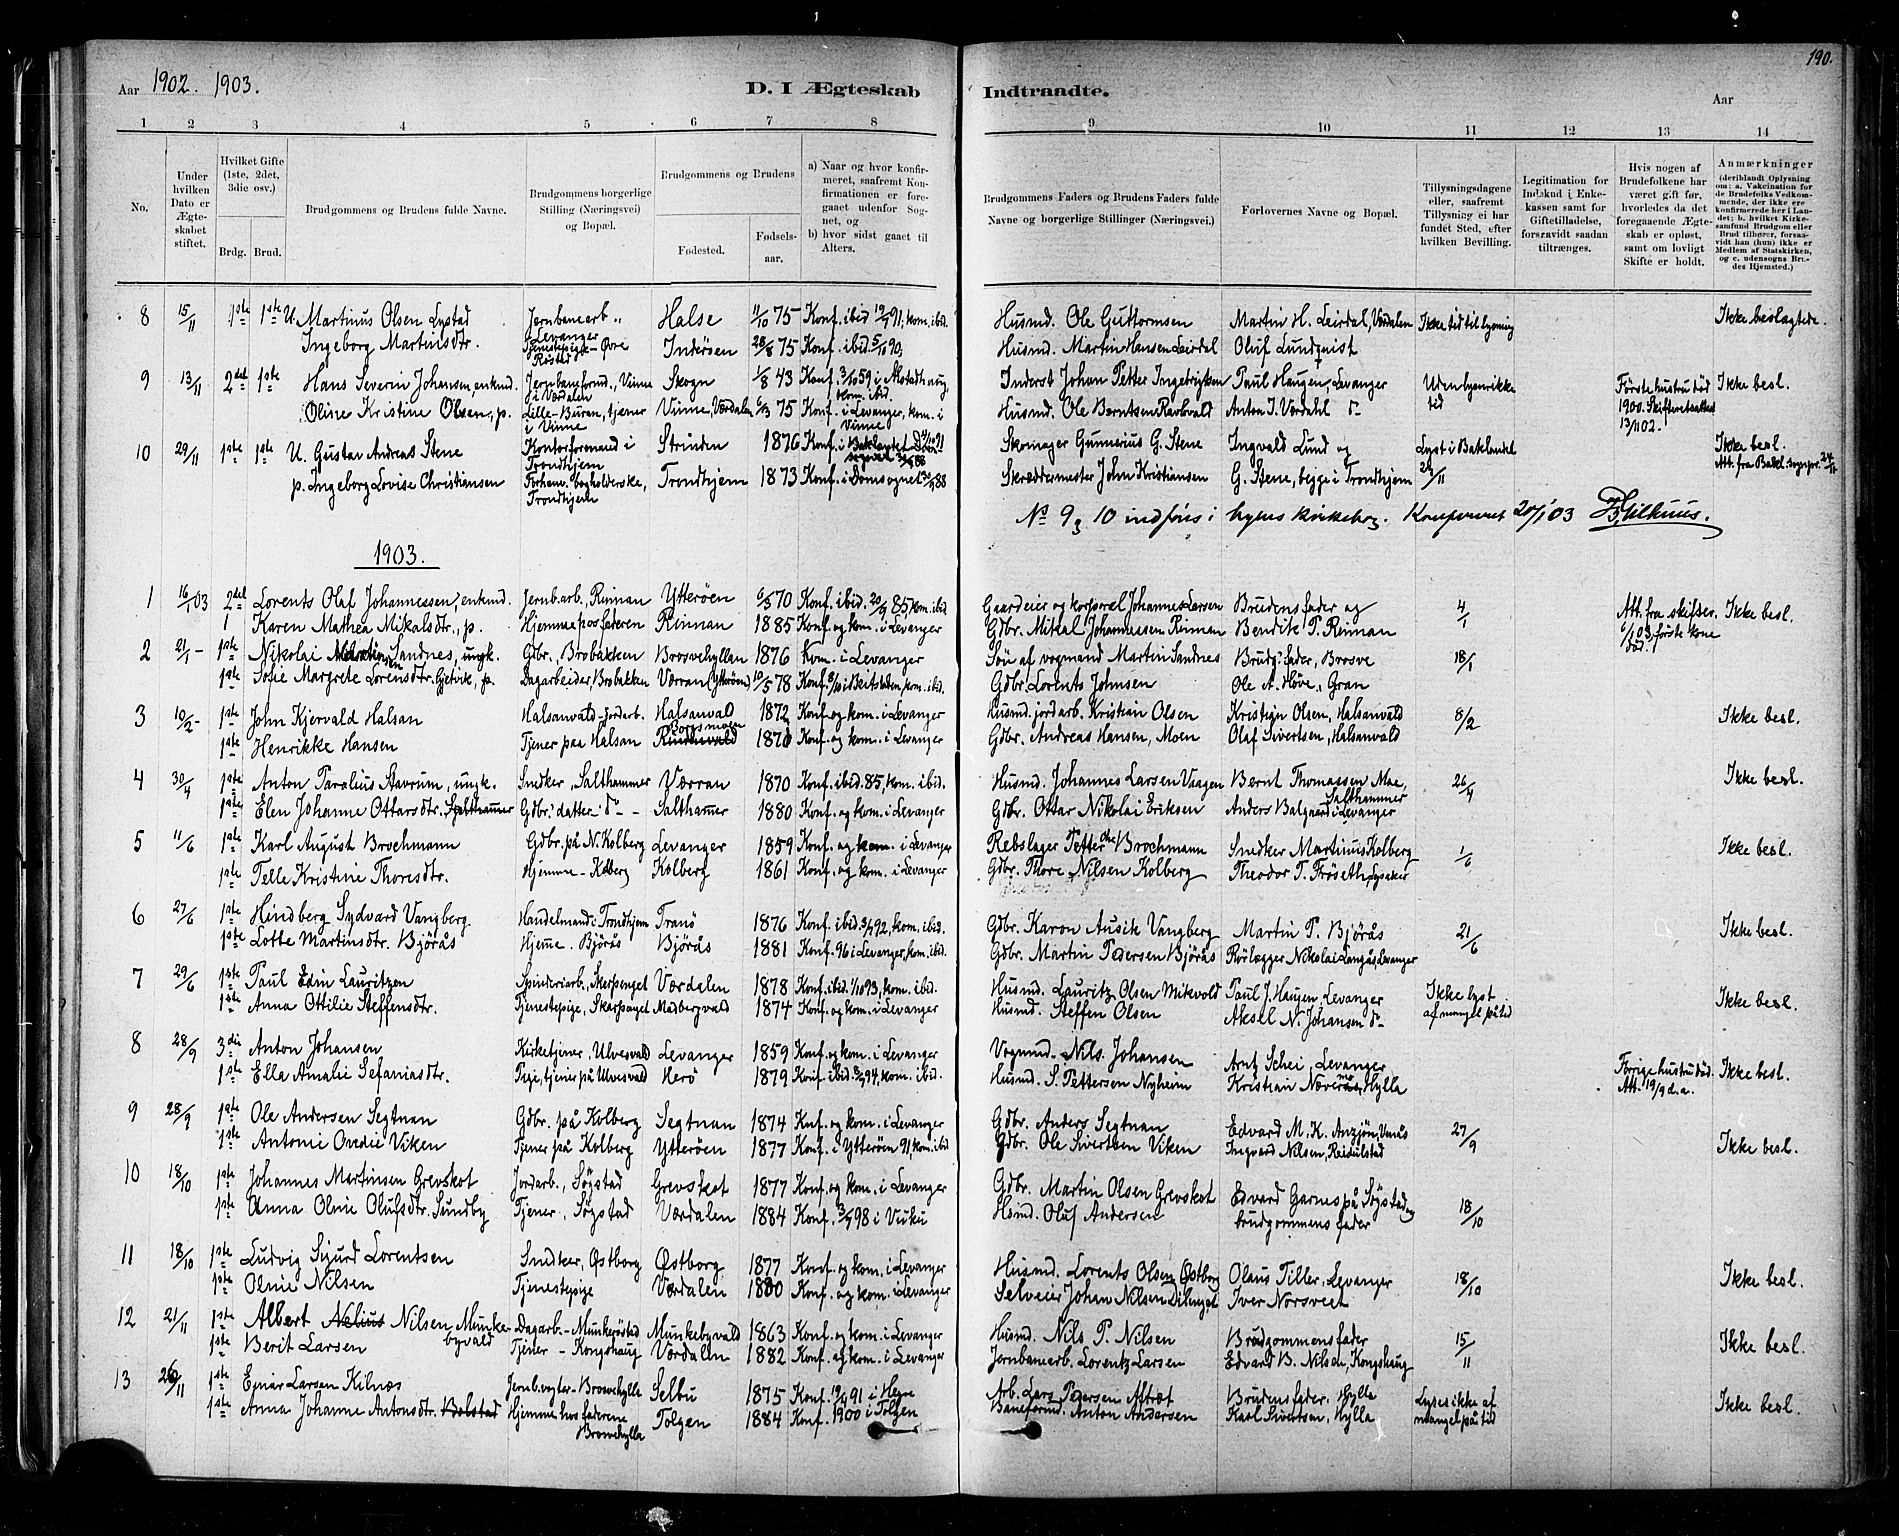 190.
Aar 1902. 1903. D. I Ægteskab Indtraadte. Aar
1 2 3 4 5 6 7 8 9 10 11 12 13 14
No.
Under hvilken Dato er Ægteskabet stiftet.
Hvilket Gifte (1ste, 2det, 3die osv.)
Brdg. Brud.
Brudgommens og Brudens fulde Navne.
Brudgommens borgerlige Stilling (Næringsvei) og Bopæl.
Brudgommens og Brudens
Fødested. Fødselsaar.
a) Naar og hvor konfirmeret, saafremt Konfirmationen er foregaaet udenfor Sognet, og
b) hvor sidst gaaet til Alters.
Brudgommens Faders og Brudens Faders fulde Navne og borgerlige Stillinger (Næringsvei.)
Forlovernes Navne og Bopæl.
Tillysningsdagene eller, saafremt Tillysning ei har fundet Sted, efter hvilken Bevilling.
Legitimation for Indskud i Enkekassen samt for Giftetilladelse, forsaavidt saadan tiltrænges.
Hvis nogen af Brudefolkene har været gift før, hvorledes da det foregaaende Ægteskab er opløst, samt om lovligt Skifte er holdt.
Anmærkninger (deriblandt Oplysning om: a. Vakcination for de Brudefolks Vedkommende, der ikke ere konfirmerede her i Landet; b. hvilket Kirkesamfund Brudgom eller Brud tilhører, forsaavidt han (hun) ikke er Medlem af Statskirken, og c. udensogns Brudes Hjemsted.)
8 15/11 1ste 1ste U. Martinus Olsen Lystad Jernbanearb., Levanger Halse 11/10 75 Konf. ibid 19/7 91, kom. ibid. Husmd. Ole Guttormsen Martin H. Leirdal, Værdalen Ikke tid til lysning Ikke beslagtede.
Ingeborg Martinsdtr. Tjenestepige - Øvre Røstad Inderøen 28/8 75 Konf. ibid. 5/10 90, Husmd. Martin Hansen Leirdal Oluf Lundquist
9 13/11 2det 1ste Hans Severin Johansen, enkmd. Jernbaneformd., Vinne i Værdalen Skogn 1/8 43 Konf. 3/10 59 i Alstadhaug kom. ibid. Inderst Johan Petter Ingebrigtsen Paul Haugen, Levanger Uden lysn. ikke tid Første hustru död 1900. Skifteretsattest 13/11 02. Ikke besl.
Oline Kristine Olsen, p. Lille-Buran, tjener i Vinne Vinne, Værdalen 6/3 75 Konf. i Levanger, kom. i Vinne Husmd. Ole Berntsen Anton I. Værdahl do
10 29/11 1ste 1ste U. Gustav Andreas Stene Kontorformand i Trondhjem Strinden 1876 Konf. i Baklandet Skomager Gunnerius G. Stene Ingvald Lund og Lyst i Baklandet Ikke besl. Att. fra Bakl. sognepr. 24/11
p. Ingeborg Lovise Christiansen Forhenv. bogholderske, Trondhjem Trondhjem 1873 Konf. i Domsognet 88 Skræddermester John Kristiansen G. Stene, begge i Trondhjem 23/11
No 9 & 10 indføres i byens kirkebog. Konfereret 20/1 03
1903.
1 16/1 03 2det Lorents Olaf Johannessen, enkmd. Jernb.arb., Rinnan Ytterøen 6/5 70 Konf. ibid. 20/9 85, kom. ibid Gaardeier og korporal Johannes Larsen Brudens fader og 4/1 Att. fra skifter. 6/1 03, første kone död. Ikke besl.
1 Karen Mathea Mikalsdtr., p. Hjemme hos faderen Rinnan 1885 Konf. og kom. i Levanger Gdbr. Mikal Johannessen Rinnan Bendik P. Rinnan
2 21/1 - 1ste Nikolai Martin Sandnes, ungk. Gdbr., Brobakken Brosvehyllan 1876 Kom. i Levanger Søn af vogmand Martin Sandnes Brudg. fader, Brosve 18/1
1ste Sofie Margrete Lorensdtr. Gjetvik, p. Dagarbeider, Brobakken Værran (Ytterøen) 10/5 78 Konf. i Beitstaden, kom. ibid. Gdbr. Lorents Johnsen Ole A. Høve, Gran
3 10/2 - 1ste John Kjervald Halsan Halsanvald - jordarb. Halsanvald 1872 Konf. og kom. i Levanger Husmd. jordarb. Kristian Olsen Kristian Olsen, Halsanvald 8/2 Ikke besl.
1ste Henrikke Hansen Tjener paa Halsan 1870 Konf. og kom. i Levanger Gdbr. Andreas Hansen, Moen Olaf Sivertsen, Halsanvald
4 30/4 1ste Anton Paralius Stavrum, ungk. Snedker, Salthammer Værran 1870 Konf. ibid. 85, kom. ibid. Husmd. Johannes Larsen Vaagen Bernt Thomassen Moe, Salthammer 26/4 Ikke besl.
1ste Elen Johanne Ottarsdtr. Salthammer Gdbr. datter do Salthammer 1880 Konf. og kom. i Levanger Gdbr. Ottar Nikolai Eriksen Anders Balgaard i Levanger
5 11/6 1ste Karl August Brochmann Gdbr. på N. Kolberg Levanger 1859 Konf. og kom. i Levanger Rebslager Petter Brochmann Snedker Martinus Kolberg 1/6 Ikke besl.
1ste Pelle Kristine Thoresdtr. Hjemme - Kolberg Kolberg 1861 Konf. og kom. i Levanger Gdbr. Thore Nilsen Kolberg Theodor T. Frøseth, Lysaker
6 27/6 1ste Hindberg Sydvard Vangberg Handelsmand i Trondhjem Tranö 1876 Konf. ibid. 3/7 92, kom. ibid. Gdbr. Karon Ausik Vangberg Martin P. Bjørås 21/6 Ikke besl.
1ste Lotte Martinsdtr. Bjørås Hjemme. Bjørås Bjørås 1881 Konf. 96 i Levanger, kom. ibid. Gdbr. Martin Pedersen Bjørås Rörlægger Nikolai Langås, Levanger
7 29/6 1ste Paul Edin Lauritzen Spinderiarb., Skarpenget Værdalen 1878 Konf. ibid. 1/10 93, kom. ibid. Husmd. Lauritz Olsen Mikvold Paul J. Haugen, Levanger Ikke lyst af mangel på tid Ikke besl.
1ste Anna Ottilie Steffensdtr. Tjenestepige, Skarpenget Madbergvald 1874 Konf. og kom. i Levanger Husmd. Steffen Olsen Aksel N. Johansen do
8 28/9 3die Anton Johansen Kirketjener, Ulvesvald Levanger 1859 Konf. og kom. i Levanger Vognmd. Nils Johansen Arnt Schei, Levanger Forrige hustru död. Att. 19/9 d.a. Ikke besl.
1ste Ella Amalie Sefaniasdtr. Pige, tjener på Ulvesvald Herö 1879 Konf. ibid. 94, kom. ibid. Husmd. S. Pettersen Nyheim Kristian Nævermo, Hylla
9 28/9 1ste Ole Andersen Segtnan Gdbr. på Kolberg Segtnan 1874 Konf. og kom. i Levanger Gdbr. Anders Segtnan Edvard M. K. Anzjøn, 27/9 Ikke besl.
1ste Antonie Ovedie Viken Tjener på Kolberg Ytterøen 1877 Konf. i Ytterøen 91, kom. ibid Gdbr. Ole Sivertsen Viken Ingvard Nilsen, Reidulstad
10 18/10 1ste Johannes Martinsen Grevskot Jordarb., Søgstad Grevskot 1877 Konf. og kom. i Levanger Gdbr. Martin Olsen Grevskot Edvard Garnes på Søgstad og 18/10
1ste Anna Oline Olufsdtr. Sundby Tjener, Søgstad Værdalen 1884 Konf. 3/7 98 i Vuku Hsmd. Oluf Andersen brudgommens fader
11 18/10 1ste Ludvig Sigurd Lorentsen Snedker, Østborg Østborg 1877 Konf. og kom. i Levanger Husmd. Lorents Olsen Østborg Olaus Tiller, Levanger 18/10 Ikke besl.
1ste Oline Nilsen Tjenestepige Værdalen 1880 Konf. og kom. i Levanger Selveier Johan Nilsen Iver Norsveet
12 21/11 1ste Albert Nelius Nilsen Munkebyvald Dagarb. - Munkerøstad Munkebyvald 1863 Konf. og kom. i Levanger Husmd. Nils P. Nilsen Brudgommens fader 15/11 Ikke besl.
1ste Berit Larsen Tjener - Kongshaug Værdalen 1882 Konf. og kom. i Levanger Jernbanearb. Lorentz Larsen Edvard B. Nilsen, Kongshaug
13 26/11 1ste Einar Larsen Kilnæs Jernb.vogter - Brosvehylla Selbu 1875 Konf. 91 i Hegre Arb. Lars Pedersen Aftræt Brudens fader. Hylla Lyses ikke af mangel på tid Ikke besl.
1ste Anna Johanne Antonsdtr. Bolstad Hjemme hos faderene Brosvehylla Tolgen 1884 Konf. 1900 i Tolgen Baneformd. Anton Andersen Karl Sivertsen, Hylla